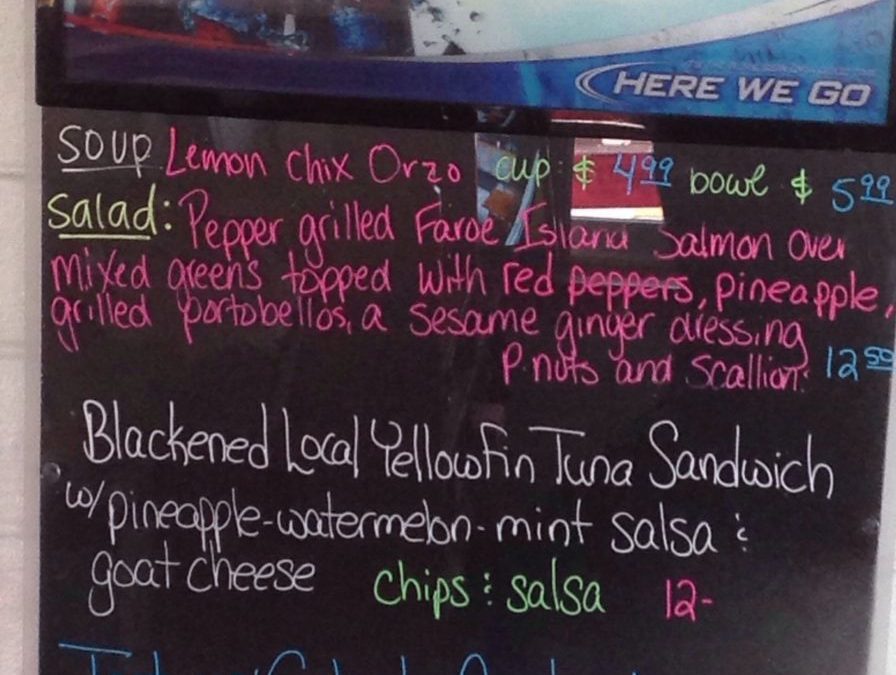 HERE WE GO
SOUP Lemon Chix Orzo cup $ 4.99 bowl $ 5.99
Salad: Pepper grilled Faroe Island Salmon over
mixed greens topped with red peppers, pineapple,
grilled portobellos, a sesame ginger dressing
P.nuts and Scallion. 12.50
Blackened Local Yellowfin Tuna Sandwich
w/ pineapple-watermelon-mint salsa &
goat cheese chips & salsa 12-